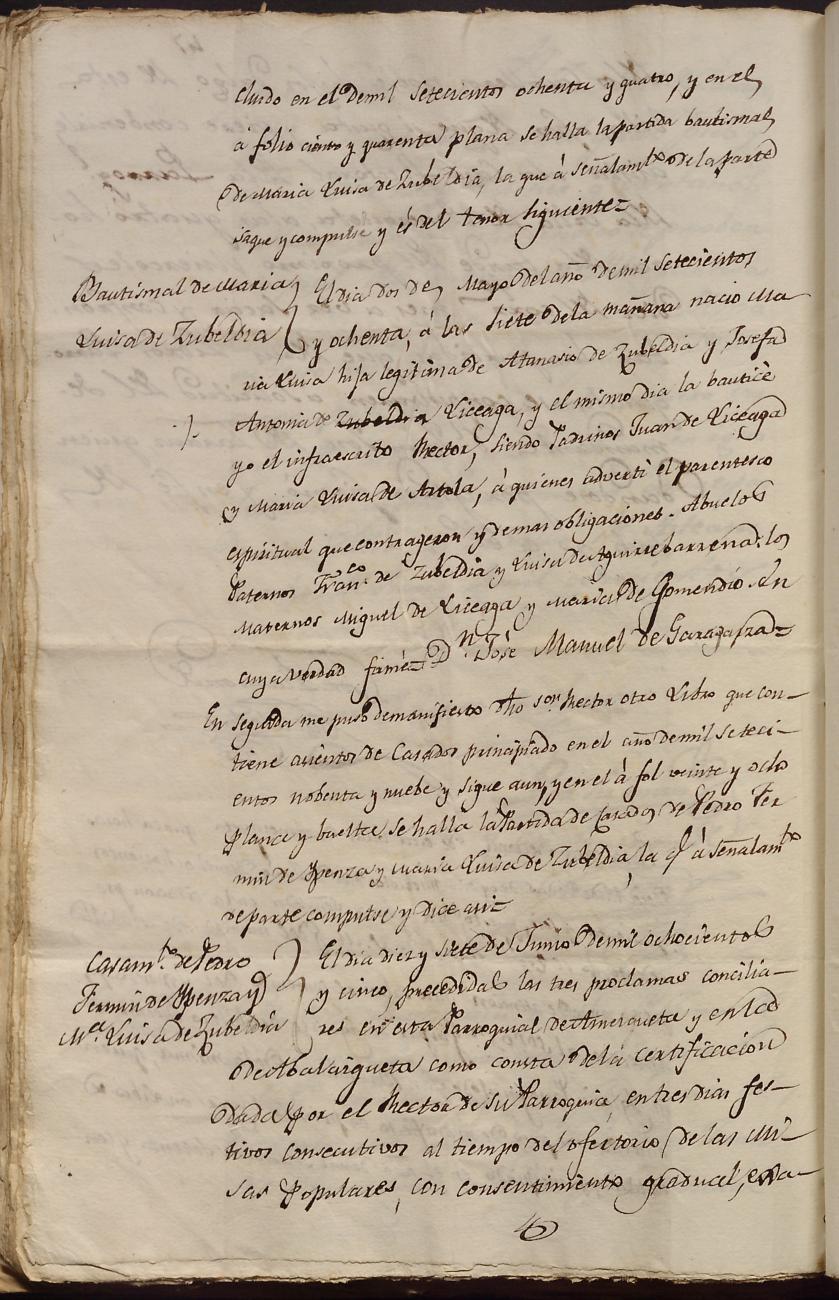 cluido en el de mil setecientos ochenta y quatro, y en el
á folio ciento y quarenta plana se halla la partida bautismal
de Maria Luisa de Zubeldia, la que á señalam.to de la parte
saque y compulse y és del tenor siguiente=
Bautismal de Maria
Luisa de Zubeldia
El dia dos de Mayo del año de mil setecientos
y ochenta, á las siete de la mañana nacio Ma-
ria Luisa hija legitima de Atanasio de Zubeldia y Josefa
Antonia de Zubeldia Liceaga, y el mismo dia la bauticè
yo el infraescrito Rector, siendo Padrinos Juan de Liceaga
y Maria Luisa de Artola, á quienes adverti el parentesco
espiritual que contrageron y demas obligaciones. Abuelos
Paternos Fran.co de Zubeldia y Luisa de Aguirrebarrena: los
Maternos Miguel de Liceaga y Maria de Gomendio. En
cuya verdad firmé= D.n José Manuel de Garagarza=
En seguida me puso de manifiesto dho s.or Rector otro Libro que con-
tiene asientos de Casados principiado en el año de mil seteci-
entos nobenta y nuebe y sigue aun, y en el á fol veinte y ocho
plana y buelta se halla la Partida de Casados de Pedro Fer
min de Ypenza y Maria Luisa de Zubeldia, la q.e á señalam.to
de parte compulse y dice asi=
Casam.to de Pedro
Fermin de Ypenza y
M.a Luisa de Zubeldia
El dia diez y siete de Junio de mil ochocientos
y cinco, precedidas las tres proclamas concilia-
res en esta Parroquial de Amezqueta y en la
de Abalcisqueta como consta de la certificacion
dada por el Rector de su Parroquia, en tres dias fes-
tivos consecutivos al tiempo del ofertorio de las Mi-
sas Populares, con consentimiento gradual, exa-